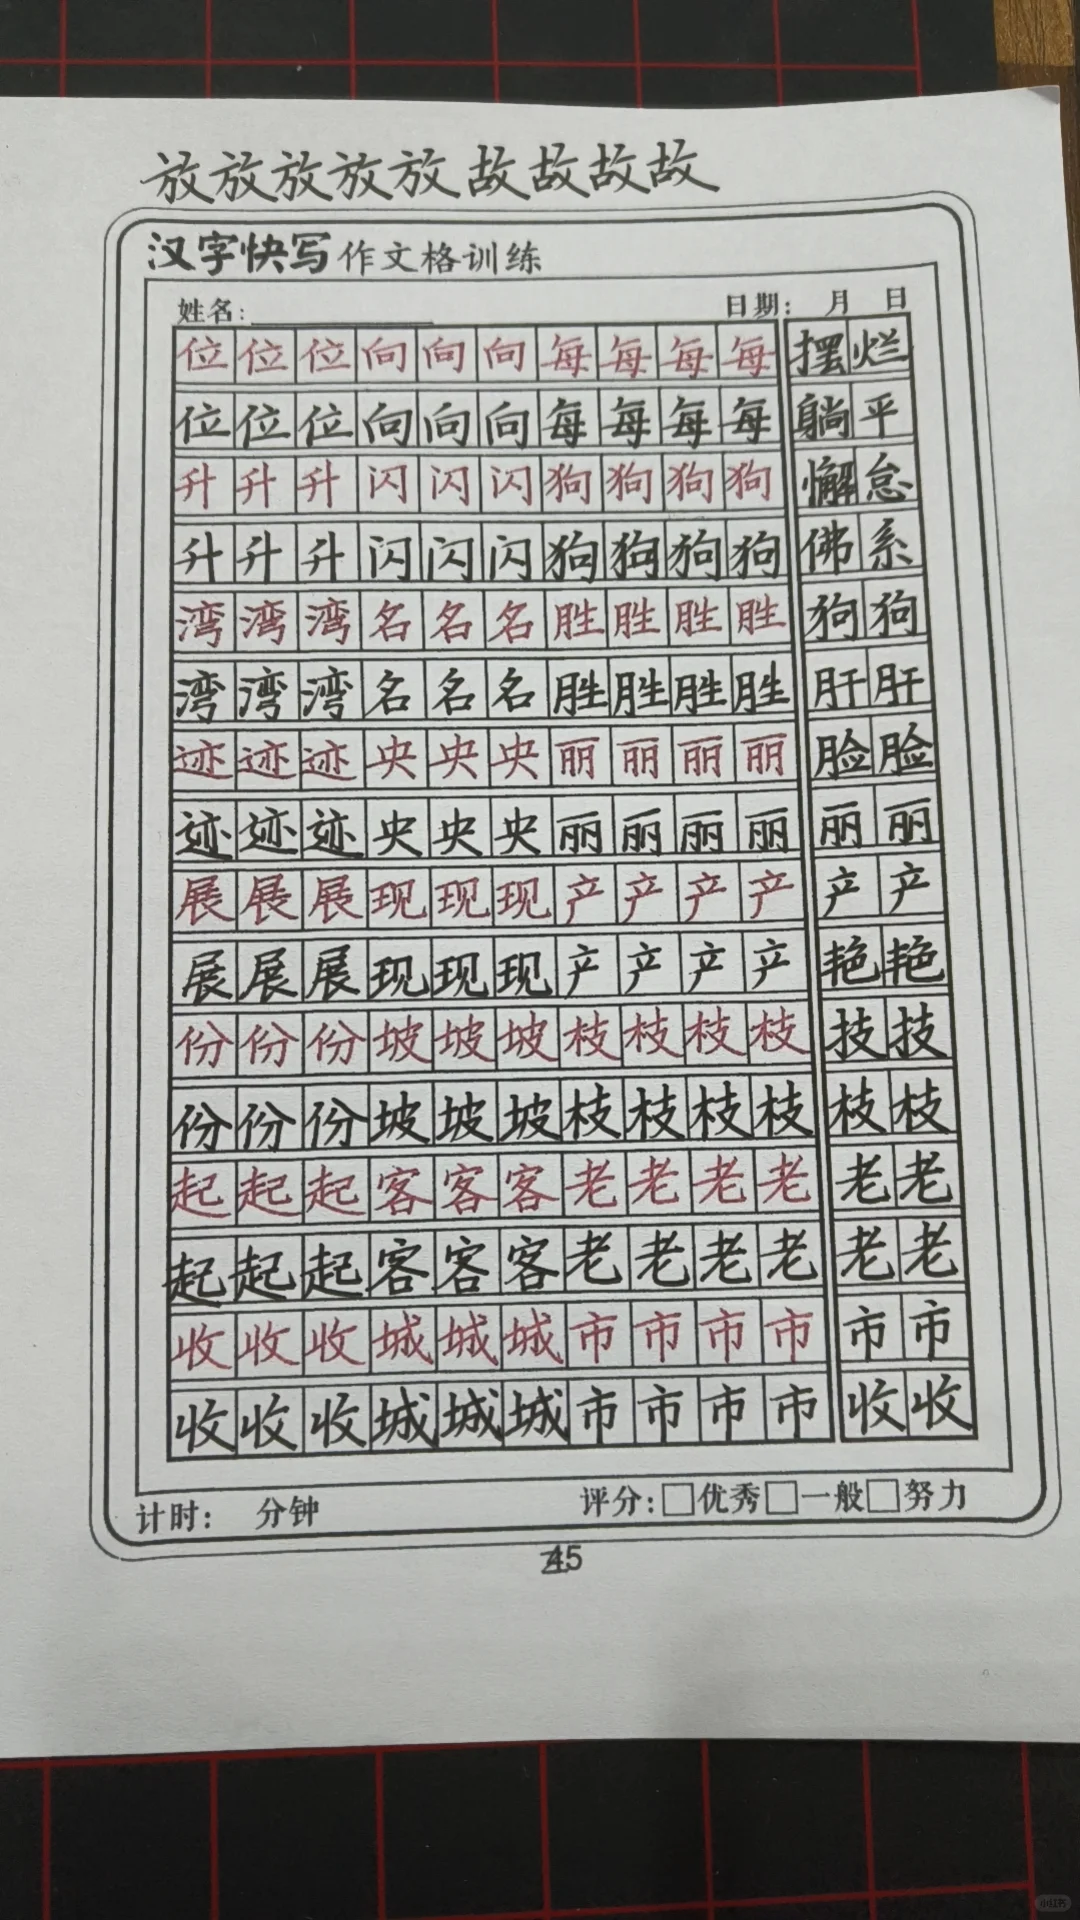 放放放放放故故故故
汉字快写作文格训练
姓名: 日期: 月 日
位位位向向向每每每每摆烂
位位位向向向每每每每躺平
升升升闪闪闪狗狗狗狗懈怠
升升升闪闪闪狗狗狗狗佛系
湾湾湾名名名胜胜胜胜狗狗
湾湾湾名名名胜胜胜胜肝肝
迹迹迹央央央丽丽丽丽脸脸
迹迹迹央央央丽丽丽丽丽丽
展展展现现现产产产产产产
展展展现现现产产产产艳艳
份份份坡坡坡枝枝枝枝技技
份份份坡坡坡枝枝枝枝枝枝
起起起客客客老老老老老老
起起起客客客老老老老老老
收收收城城城市市市市市市
收收收城城城市市市市收收
计时: 分钟 评分:□优秀□一般□努力
45
小红书